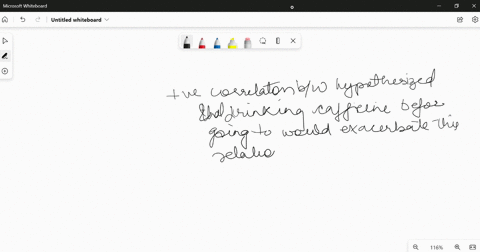 Microsoft Whiteboard
Untitled whiteboard
+ve correlation b/w hypothesized
that drinking caffeine before
going to would exacerbate this
relatio
116%